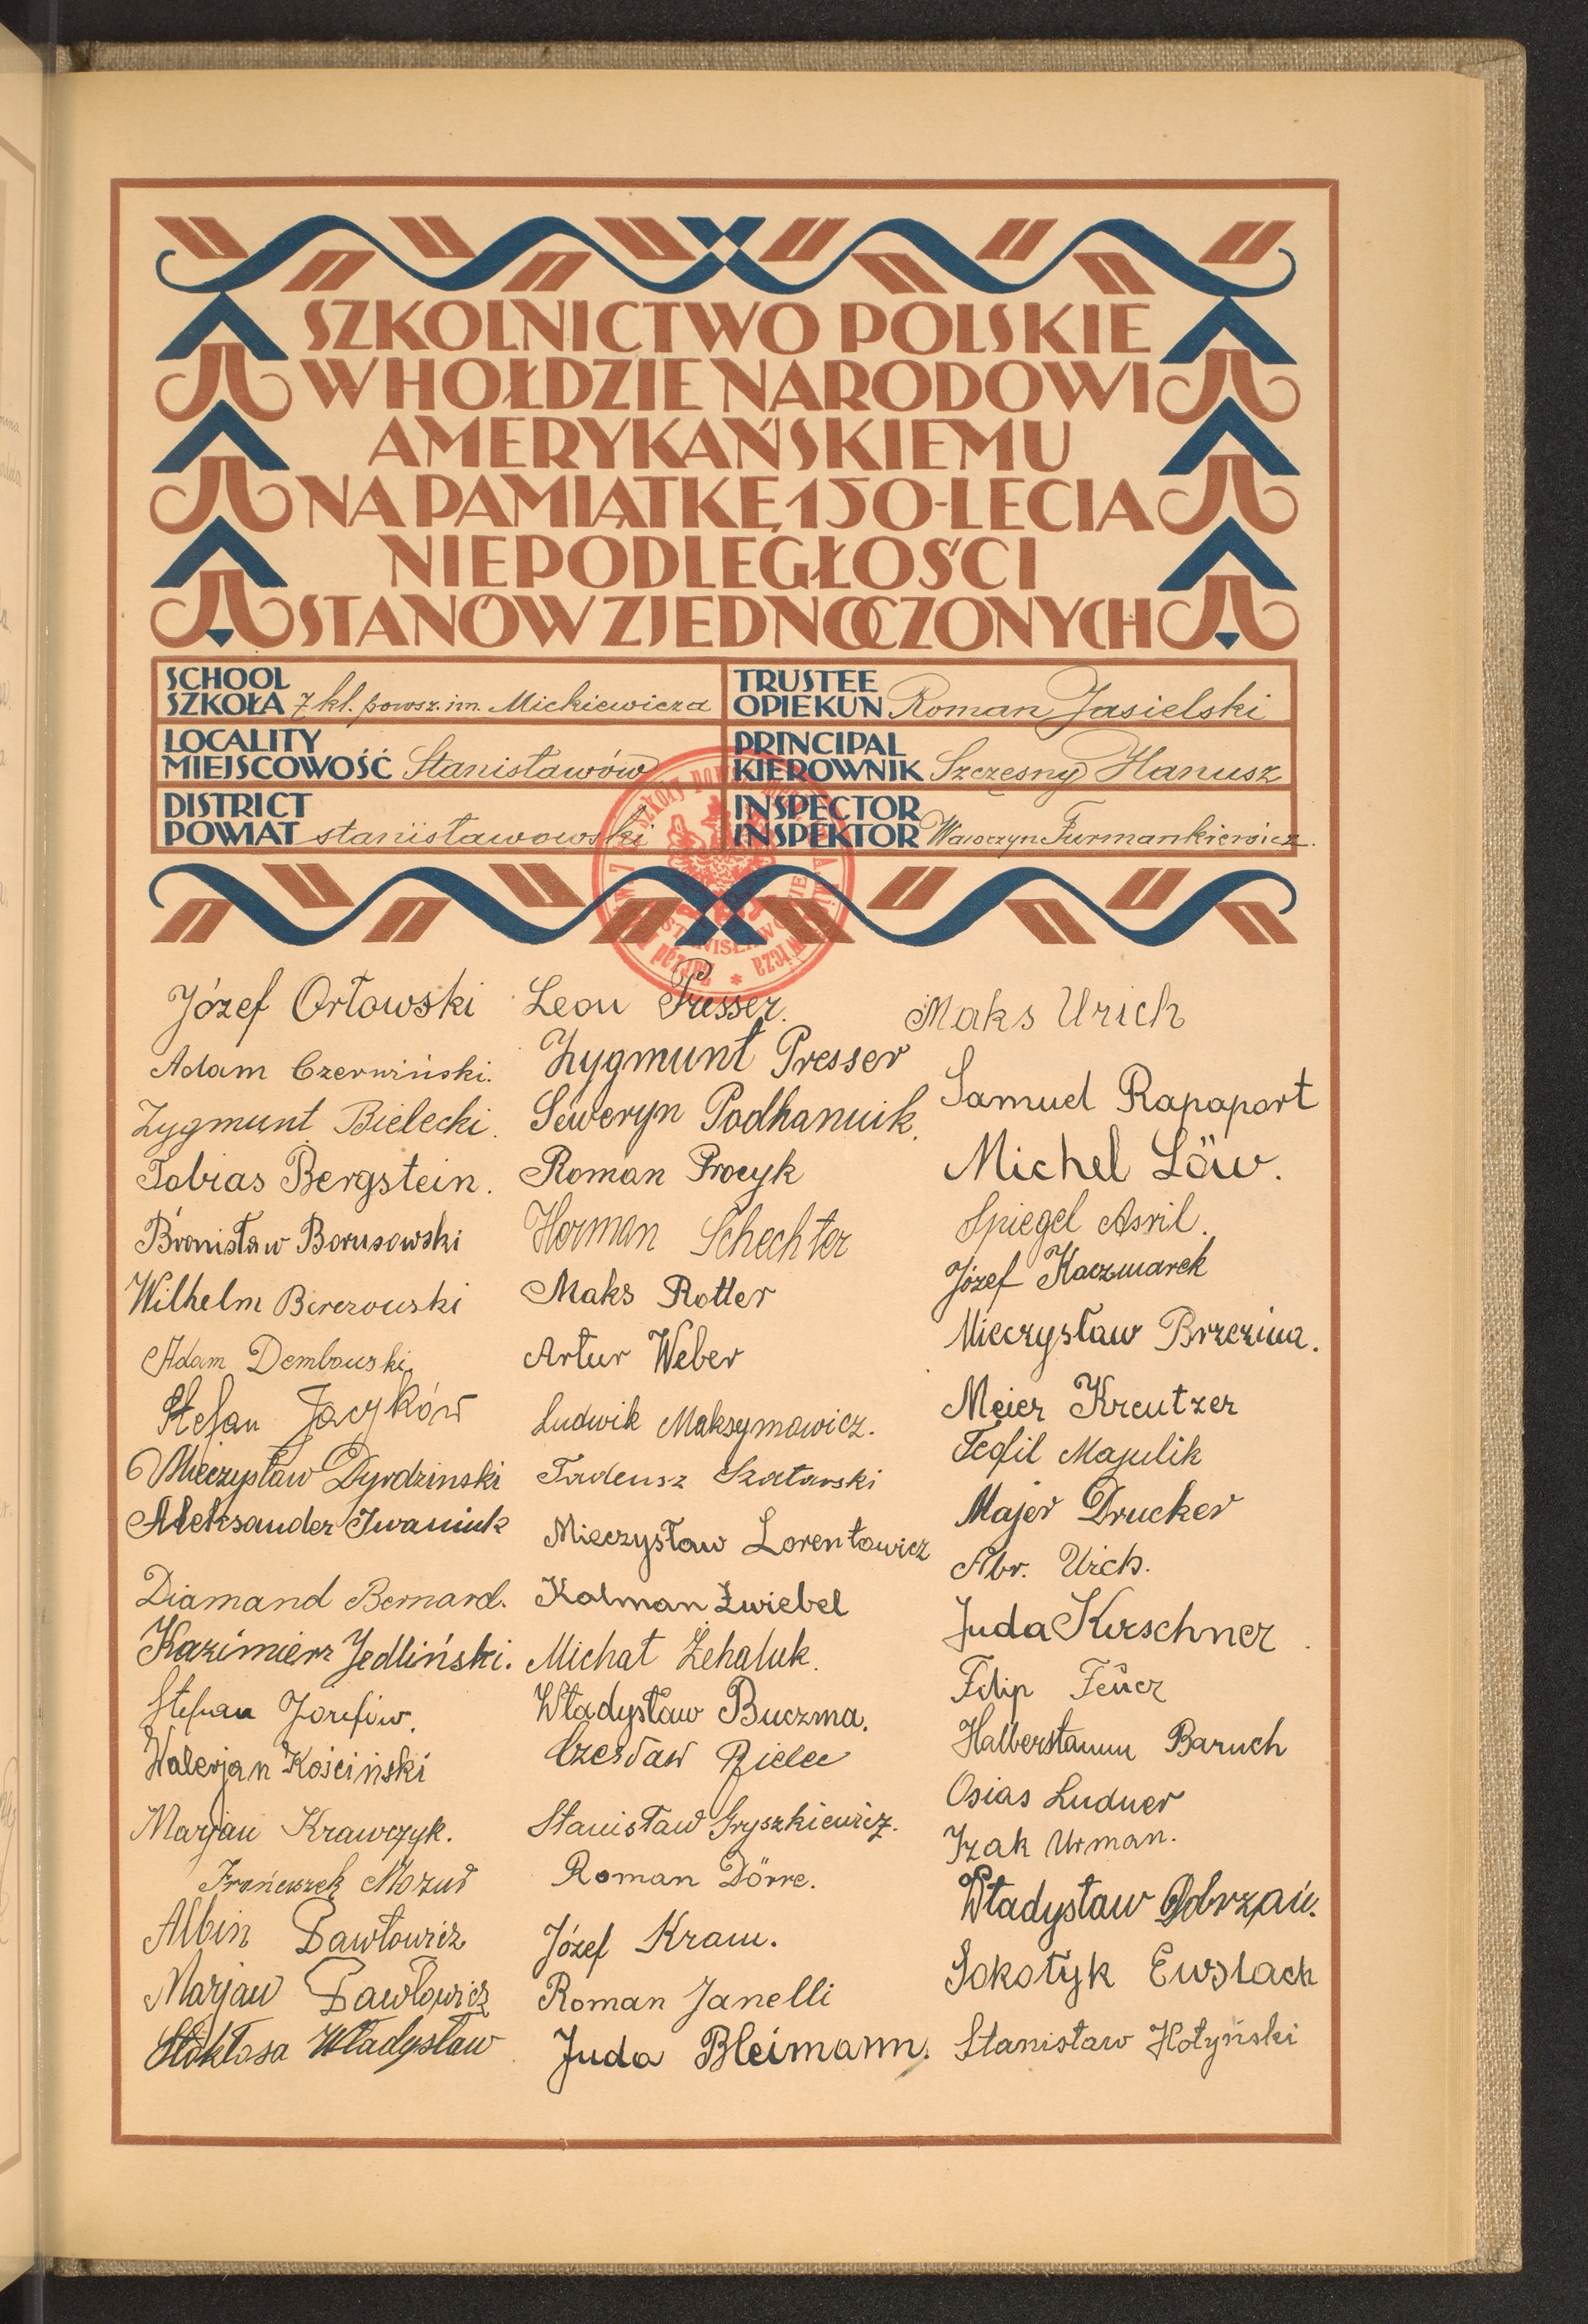 SZKOLNICTWO POLSKIE
W HOŁDZIE NARODOWI
AMERYKAŃSKIEMU
NA PAMIĄTKĘ 150-LECIA
NIEPODLEGŁOŚCI
STANÓW ZJEDNOCZONYCH
SCHOOL
SZKOŁA 7 kl. powsz. im. Mickiewicza
TRUSTEE
OPIEKUN Roman Jasielski
LOCALITY
MIEJSCOWOŚĆ Stanisławów
PRINCIPAL
KIEROWNIK Szczęsny Hanusz
DISTRICT
POWIAT stanisławowski
INSPECTOR
INSPEKTOR Wawrzyn Furmankiewicz.
Józef Orłowski
Adam Czerwiński.
Zygmunt Bielecki.
Tobias Bergstein.
Bronisław Borusowski
Wilhelm Berezowski
Adam Dembowski
Stefan Jacyków
Mieczysław Dyrdzinski
Aleksander Iwaniuk
Diamand Bernard.
Kazimierz Jedliński.
Stefan Józefów.
Walerjan Kościński
Marjan Krawczyk.
Franciszek Mozuł
Albin Pawłowicz
Marjan Pawłowicz
Stokłosa Władysław
Leon Presser.
Zygmunt Presser
Seweryn Podhaniuk.
Roman Procyk
Herman Schechter
Maks Rotter
Artur Weber
Ludwik Maksymowicz.
Tadeusz Szatarski
Mieczysław Lorentowicz
Kalman Zwiebel
Michał Żehaluk.
Władysław Buczma.
Czesław Bielec
Stanisław Gryszkiewicz.
Roman Dörre.
Józef Kram.
Roman Janelli
Juda Bleimann.
Maks Urich
Samuel Rapaport
Michel Löw.
Spiegel Asril.
Józef Kaczmarek
Mieczysław Brzezina.
Meier Kreutzer
Teofil Majulik
Majer Drucker
Abr. Urich.
Juda Kirschner
Filip Feuer
Halberstamm Baruch
Osias Ludner
Izak Urman.
Władysław Dobrzań.
Sokołyk Eustach
Stanisław Hołyński